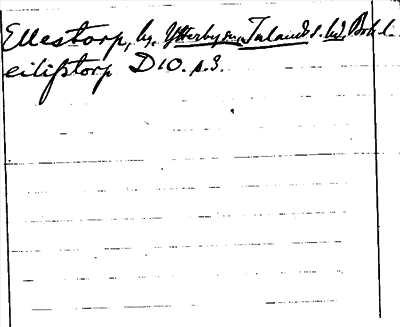 Ellestorp, by, Ytterby sn, Inlands s. hd, Boh. l.
eilifstorp D 10. s. 3.